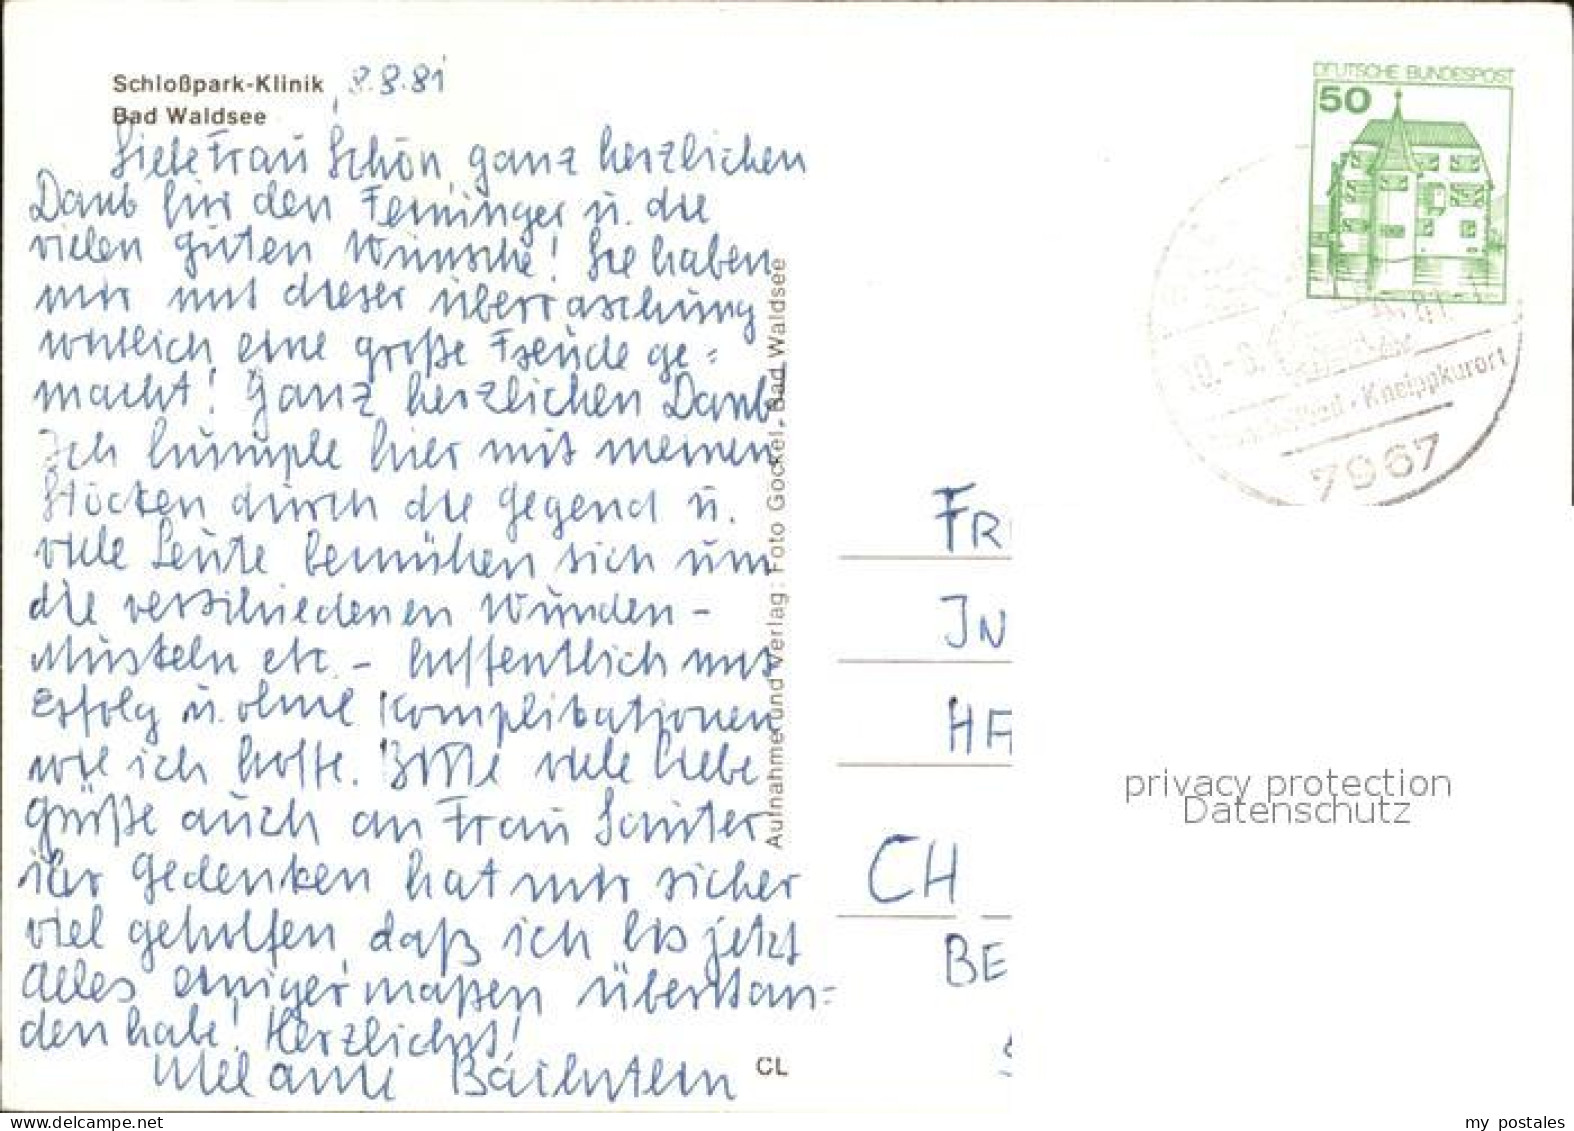 Schloßpark-Klinik
8.8.81
Bad Waldsee
Liebe Frau Schön, ganz herzlichen
Dank für den Feininger u. die
vielen guten Wünsche! Sie haben
mir mit dieser Überraschung
wirklich eine große Freude ge=
macht! Ganz herzlichen Dank
Ich humple hier mit meinen
Stöcken durch die Gegend u.
viele Leute bemühen sich um
die verschiedenen Wunden-
Muskeln etc. - hoffentlich mit
Erfolg u. ohne Komplikationen
wie ich hoffe. Bitte viele liebe
Grüße auch an Frau Sauter
ihr Gedenken hat mir sicher
viel geholfen, daß ich bis jetzt
Alles einigermaßen überstan=
den habe! Herzlichst!
Melanie
Aufnahme und Verlag: Foto Gockel, Bad Waldsee
CL
DEUTSCHE BUNDESPOST
50
Kneippkurort
7967
FR
IN
HA
CH
BE
privacy protection
Datenschutz
www.delcampe.net
my postales